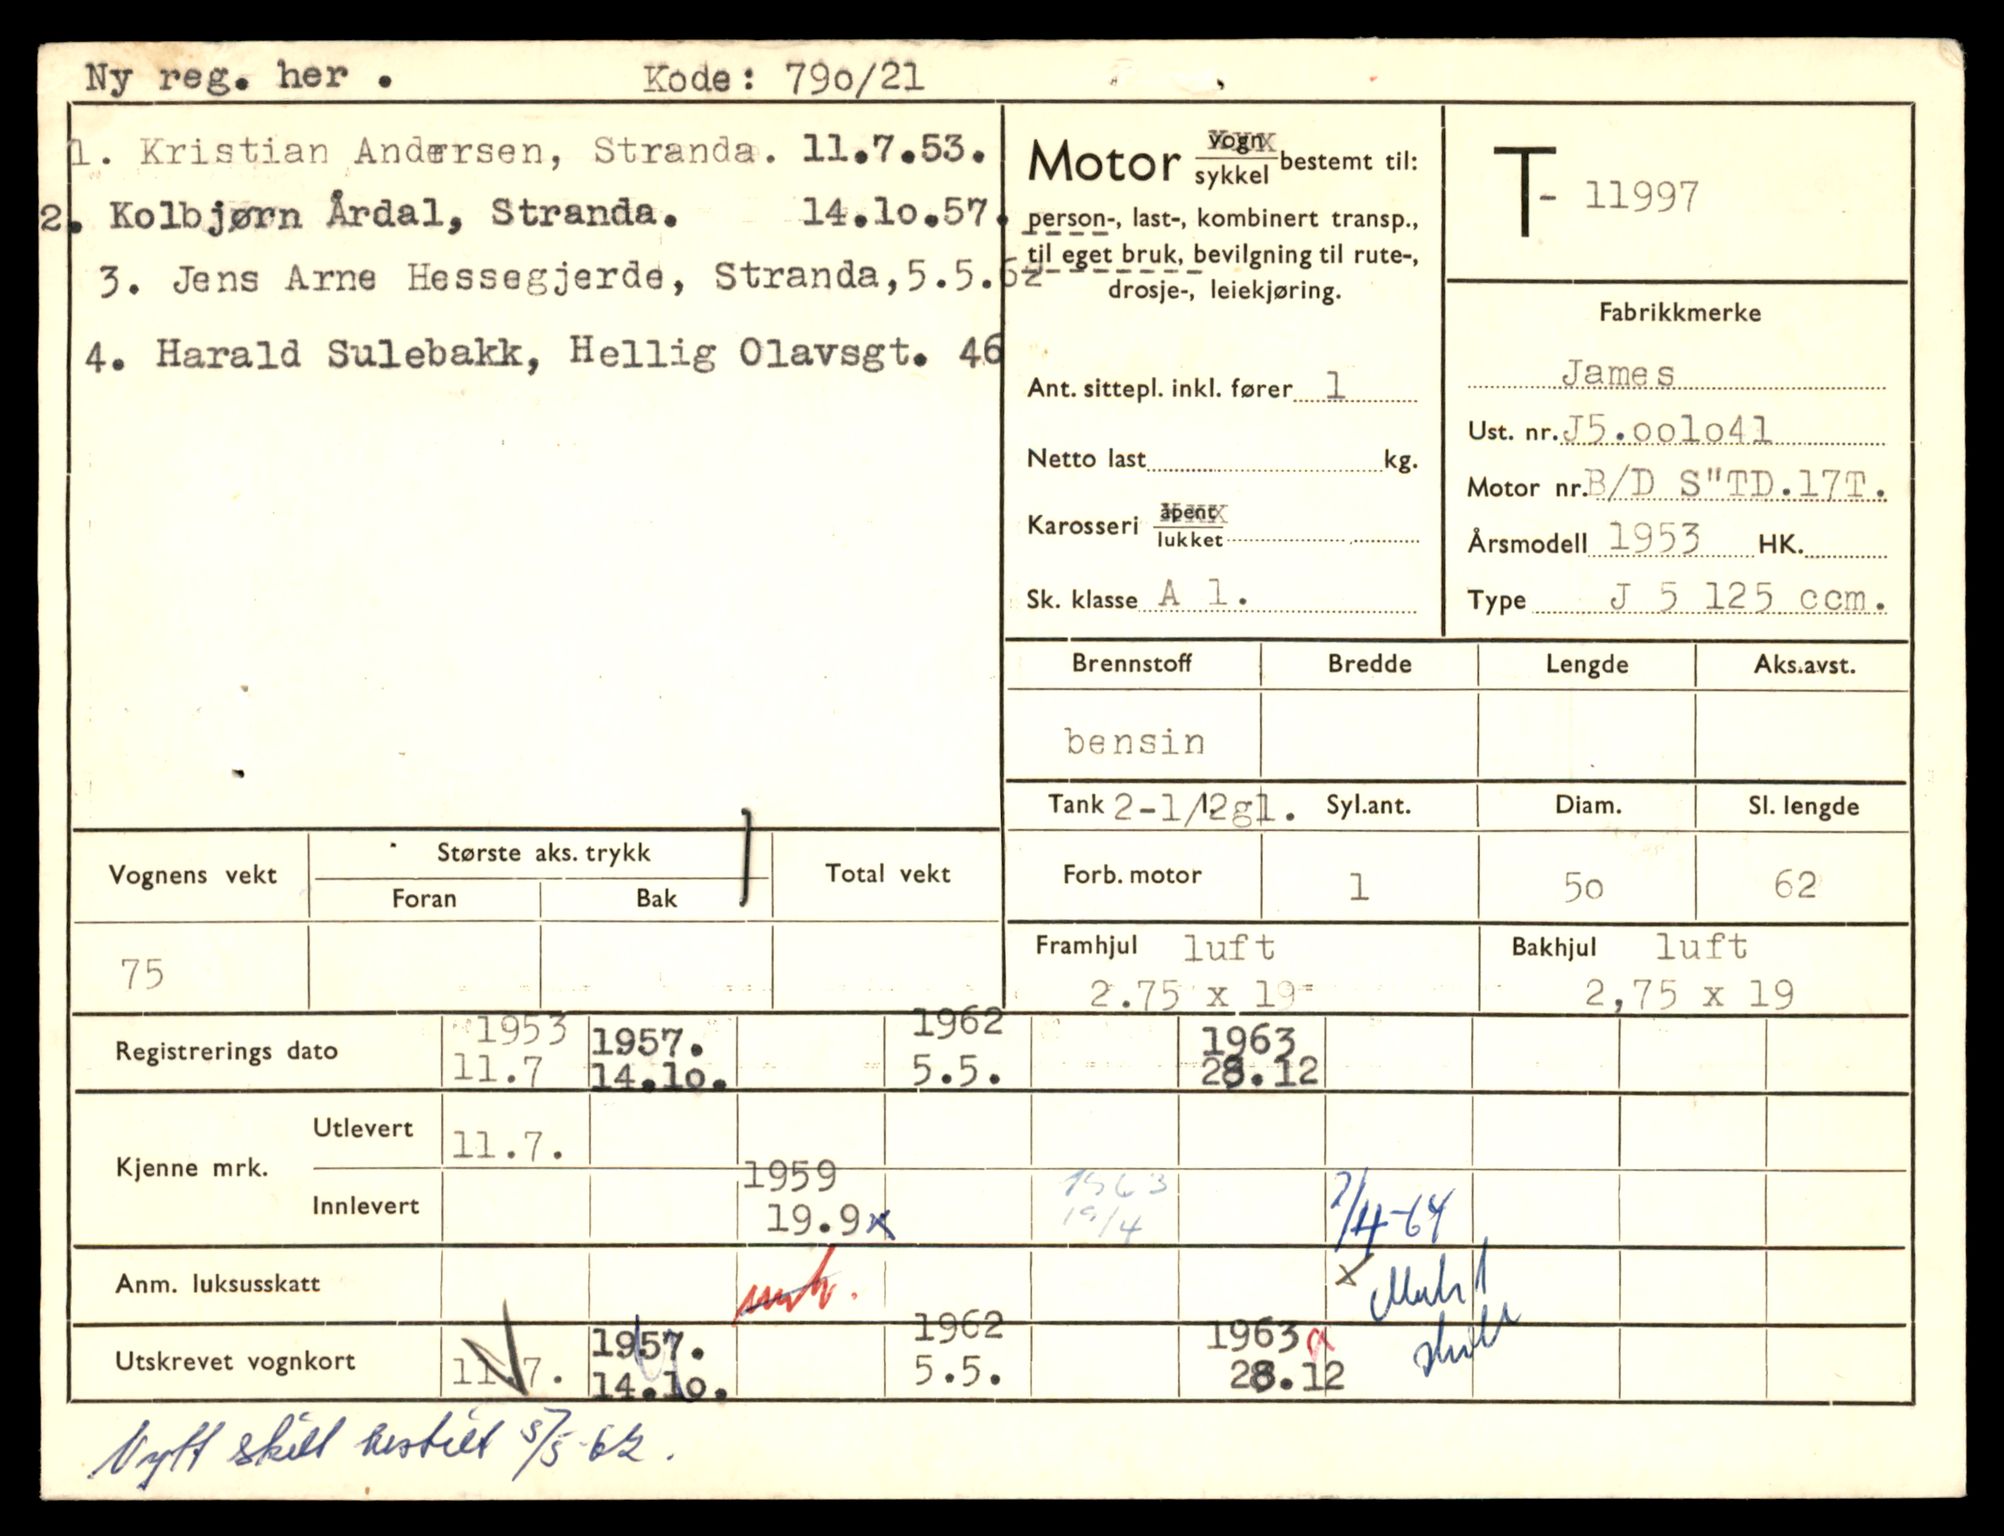 Ny reg. her . Kode: 79o/21
1. Kristian Andersen, Stranda. 11.7.53.
2. Kolbjørn Årdal, Stranda. 14.1o.57.
3. Jens Arne Hessegjerde, Stranda,5.5.62
4. Harald Sulebakk, Hellig Olavsgt. 46
Motor vogn/sykkel bestemt til:
person-, last-, kombinert transp.,
til eget bruk, bevilgning til rute-,
drosje-, leiekjøring.
Ant. sittepl. inkl. fører 1
Netto last kg.
Karosseri åpent/lukket
Sk. klasse A 1.
T- 11997
Fabrikkmerke
James
Ust. nr. J5.oo1o41
Motor nr. B/D S"TD.17T.
Årsmodell 1953 HK.
Type J 5 125 ccm.
Brennstoff Bredde Lengde Aks.avst.
bensin
Tank 2-1/2gl. Syl.ant. Diam. Sl. lengde
Forb. motor 1 5o 62
Framhjul luft Bakhjul luft
2.75 x 19 2,75 x 19
Vognens vekt Største aks. trykk Total vekt
Foran Bak
75
Registrerings dato 1953 1957. 1962 1963
11.7 14.1o. 5.5. 28.12
Kjenne mrk. Utlevert 11.7.
Innlevert 1959 1963 7/4-64
19.9x 19/4
Anm. luksusskatt x
Utskrevet vognkort 11.7. 1957. 1962 1963
14.1o. 5.5. 28.12
Nytt skilt bestilt 5/5-62.